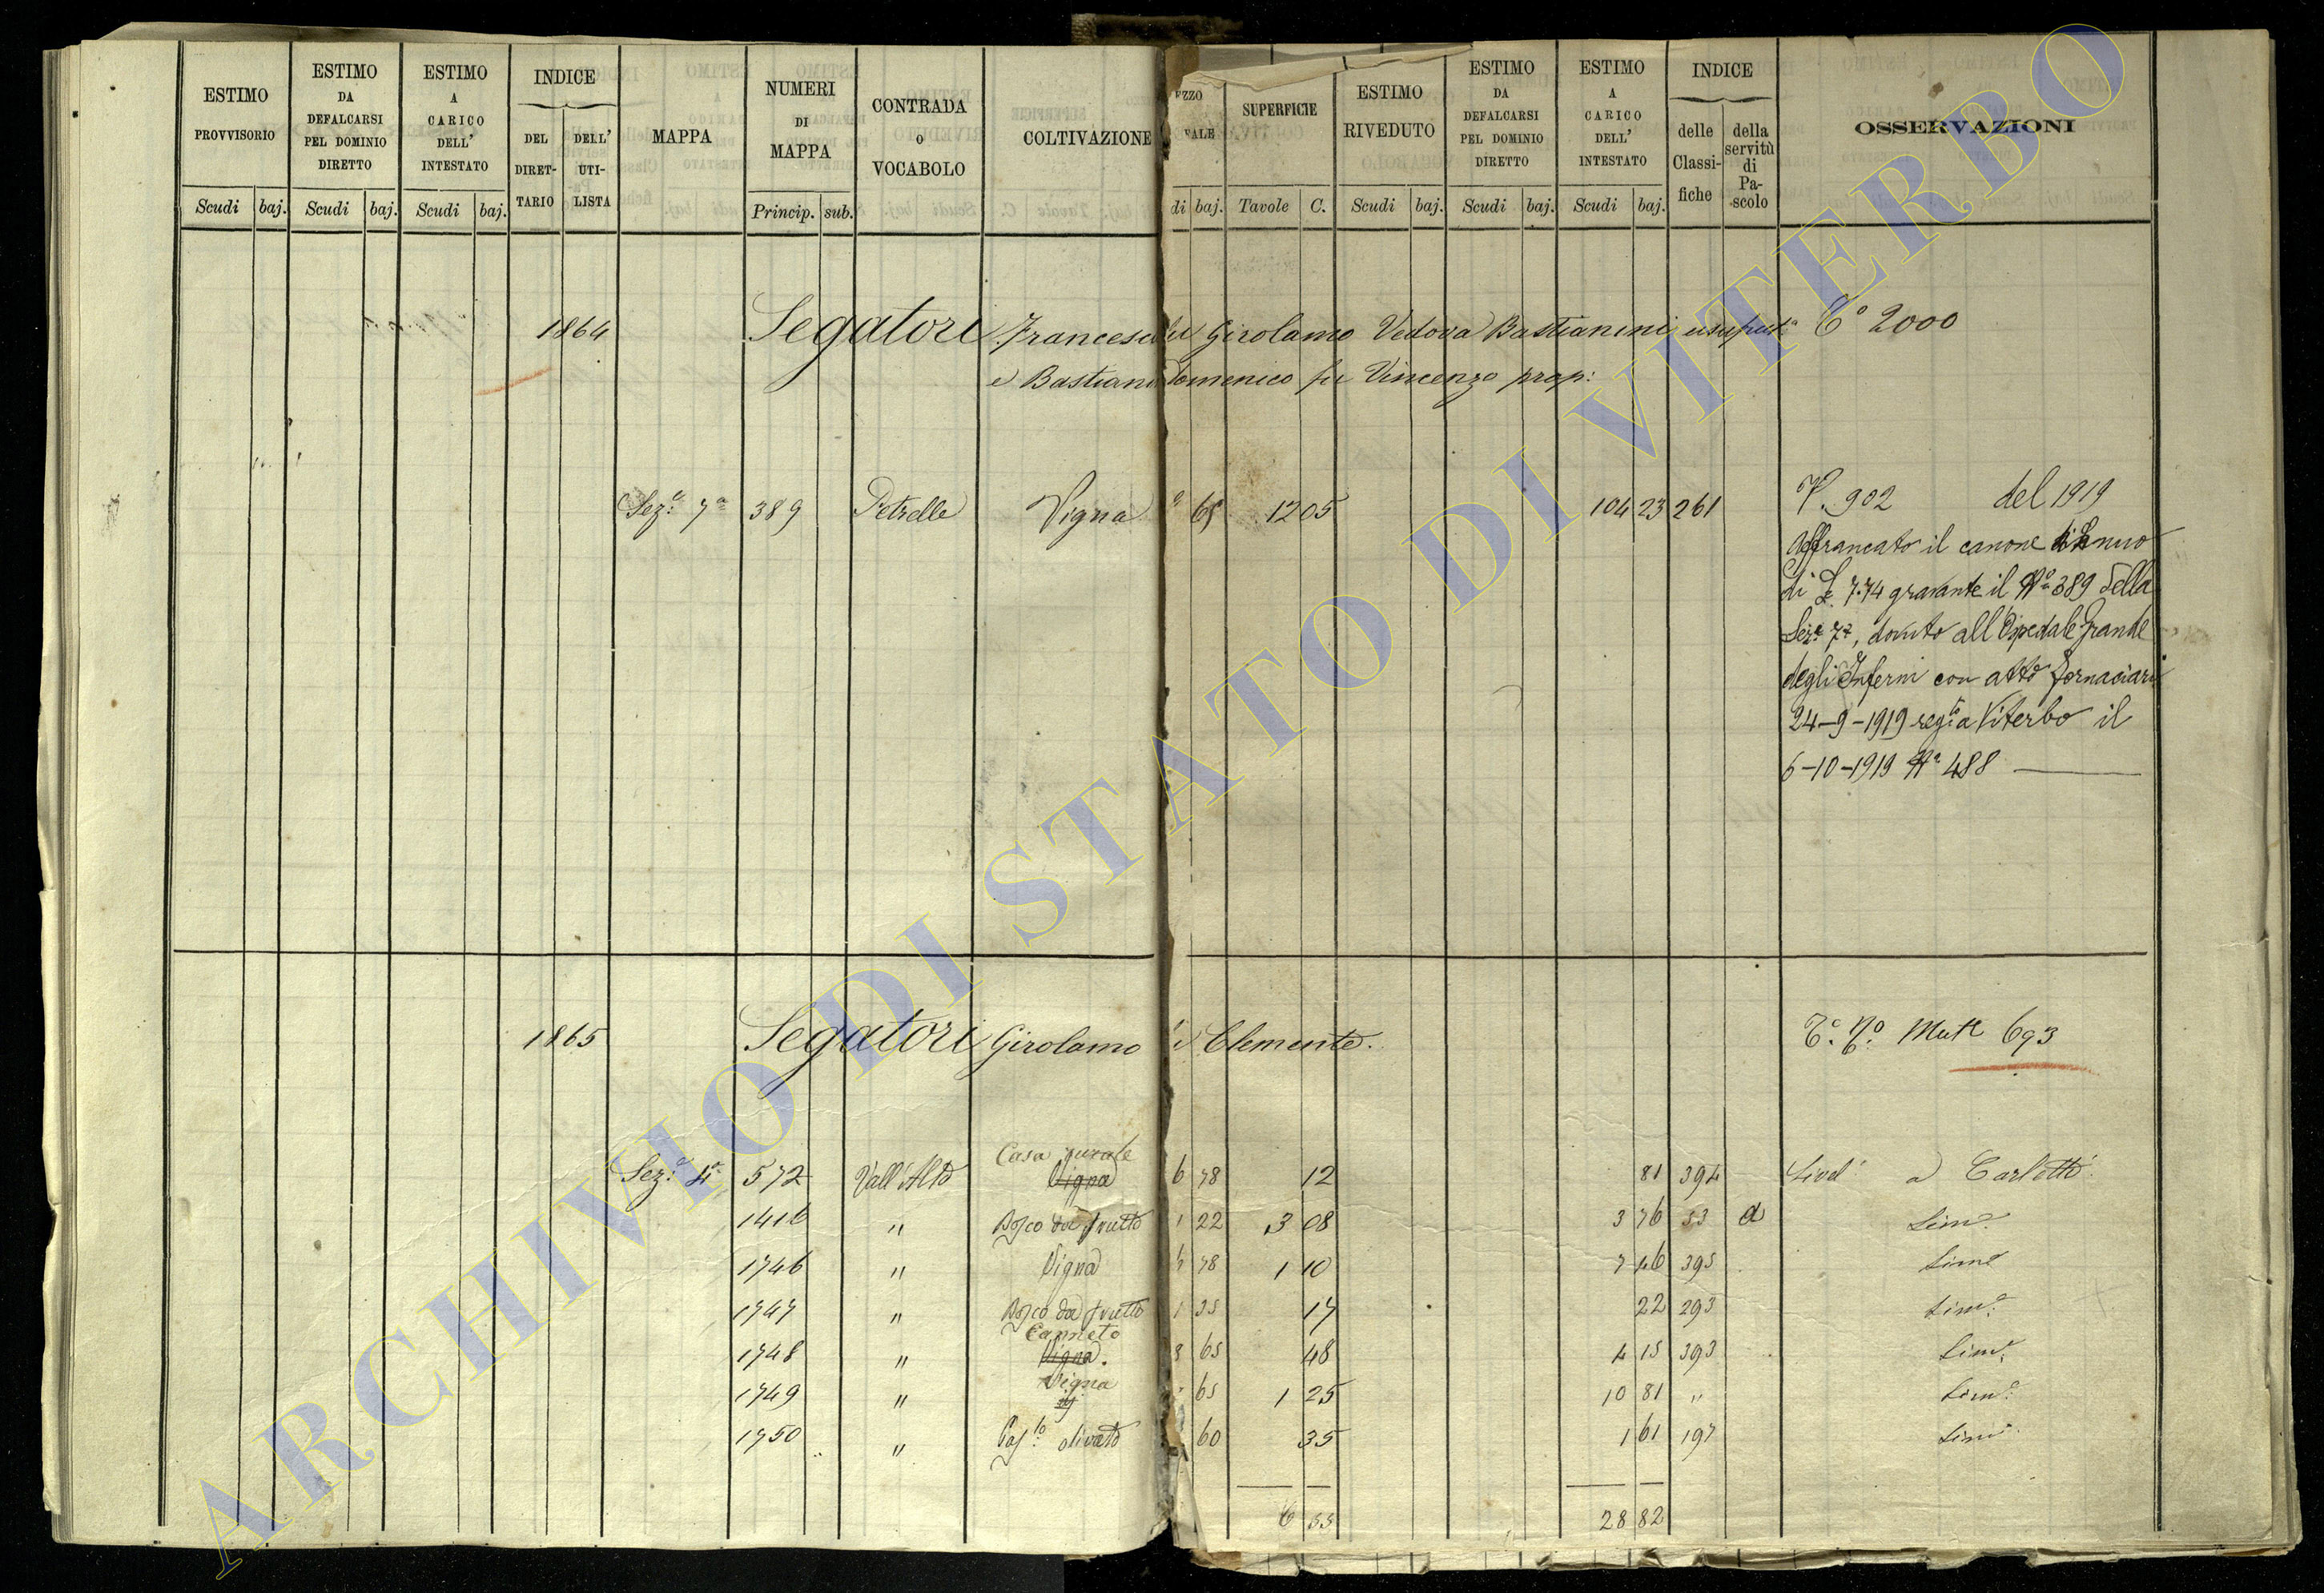 ESTIMO PROVVISORIO
Scudi baj.
ESTIMO DA DEFALCARSI PEL DOMINIO DIRETTO
Scudi baj.
ESTIMO A CARICO DELL' INTESTATO
Scudi baj.
INDICE
DEL DIRET-TARIO
DELL' UTI-LISTA
MAPPA
NUMERI DI MAPPA
Princip. sub.
CONTRADA O VOCABOLO
COLTIVAZIONE
ZZO
ALE
di baj.
SUPERFICIE
Tavole C.
ESTIMO RIVEDUTO
Scudi baj.
ESTIMO DA DEFALCARSI PEL DOMINIO DIRETTO
Scudi baj.
ESTIMO A CARICO DELL' INTESTATO
Scudi baj.
INDICE
delle Classi-fiche
della servitù di Pa-scolo
OSSERVAZIONI
1864 Segatori Francesca fu Girolamo Vedova Bastianini usufrutta Cº 2000
e Bastianini Domenico fu Vincenzo prop:
Sez.e 7a 389 Petrelle Vigna 65 12 05 104 23 261
V. 902 del 1919
Affrancato il canone annuo
di L. 7.74 gravante il Nº 389 della
Sez.e 7a, dovuto all'Ospedale Grande
degli Infermi con atto Fornaciari
24-9-1919 regto a Viterbo il
6-10-1919 Nº 488
1865 Segatori Girolamo di Clemente. Mut 693
Casa rurale
Sez.e 4a 572 Vall'Alta Vigna 6 78 12 81 394 Livel a Carletti
1416 " Bosco da frutto 1 22 3 08 3 76 53 a Sim.e
1746 " Vigna 78 1 10 7 46 395 Sime
1747 " Bosco da frutto 1 35 17 22 293 Sim.e
Canneto
1748 " Vigna. 8 65 48 4 15 393 Sim.e
Vigna
1749 " 65 1 25 10 81 " Sim.e
1750 " Pas.lo olivato 60 35 1 61 197 Sime
6 55 28 82
ARCHIVIO DI STATO DI VITERBO